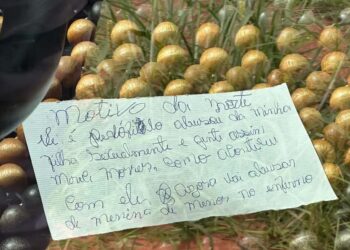 Motivo da morte
Ele é pedófilo abusou da minha
filha sexualmente e gente assim
morrer, como aconteceu
com ele Agora vai abusar
de menina de menor no inferno